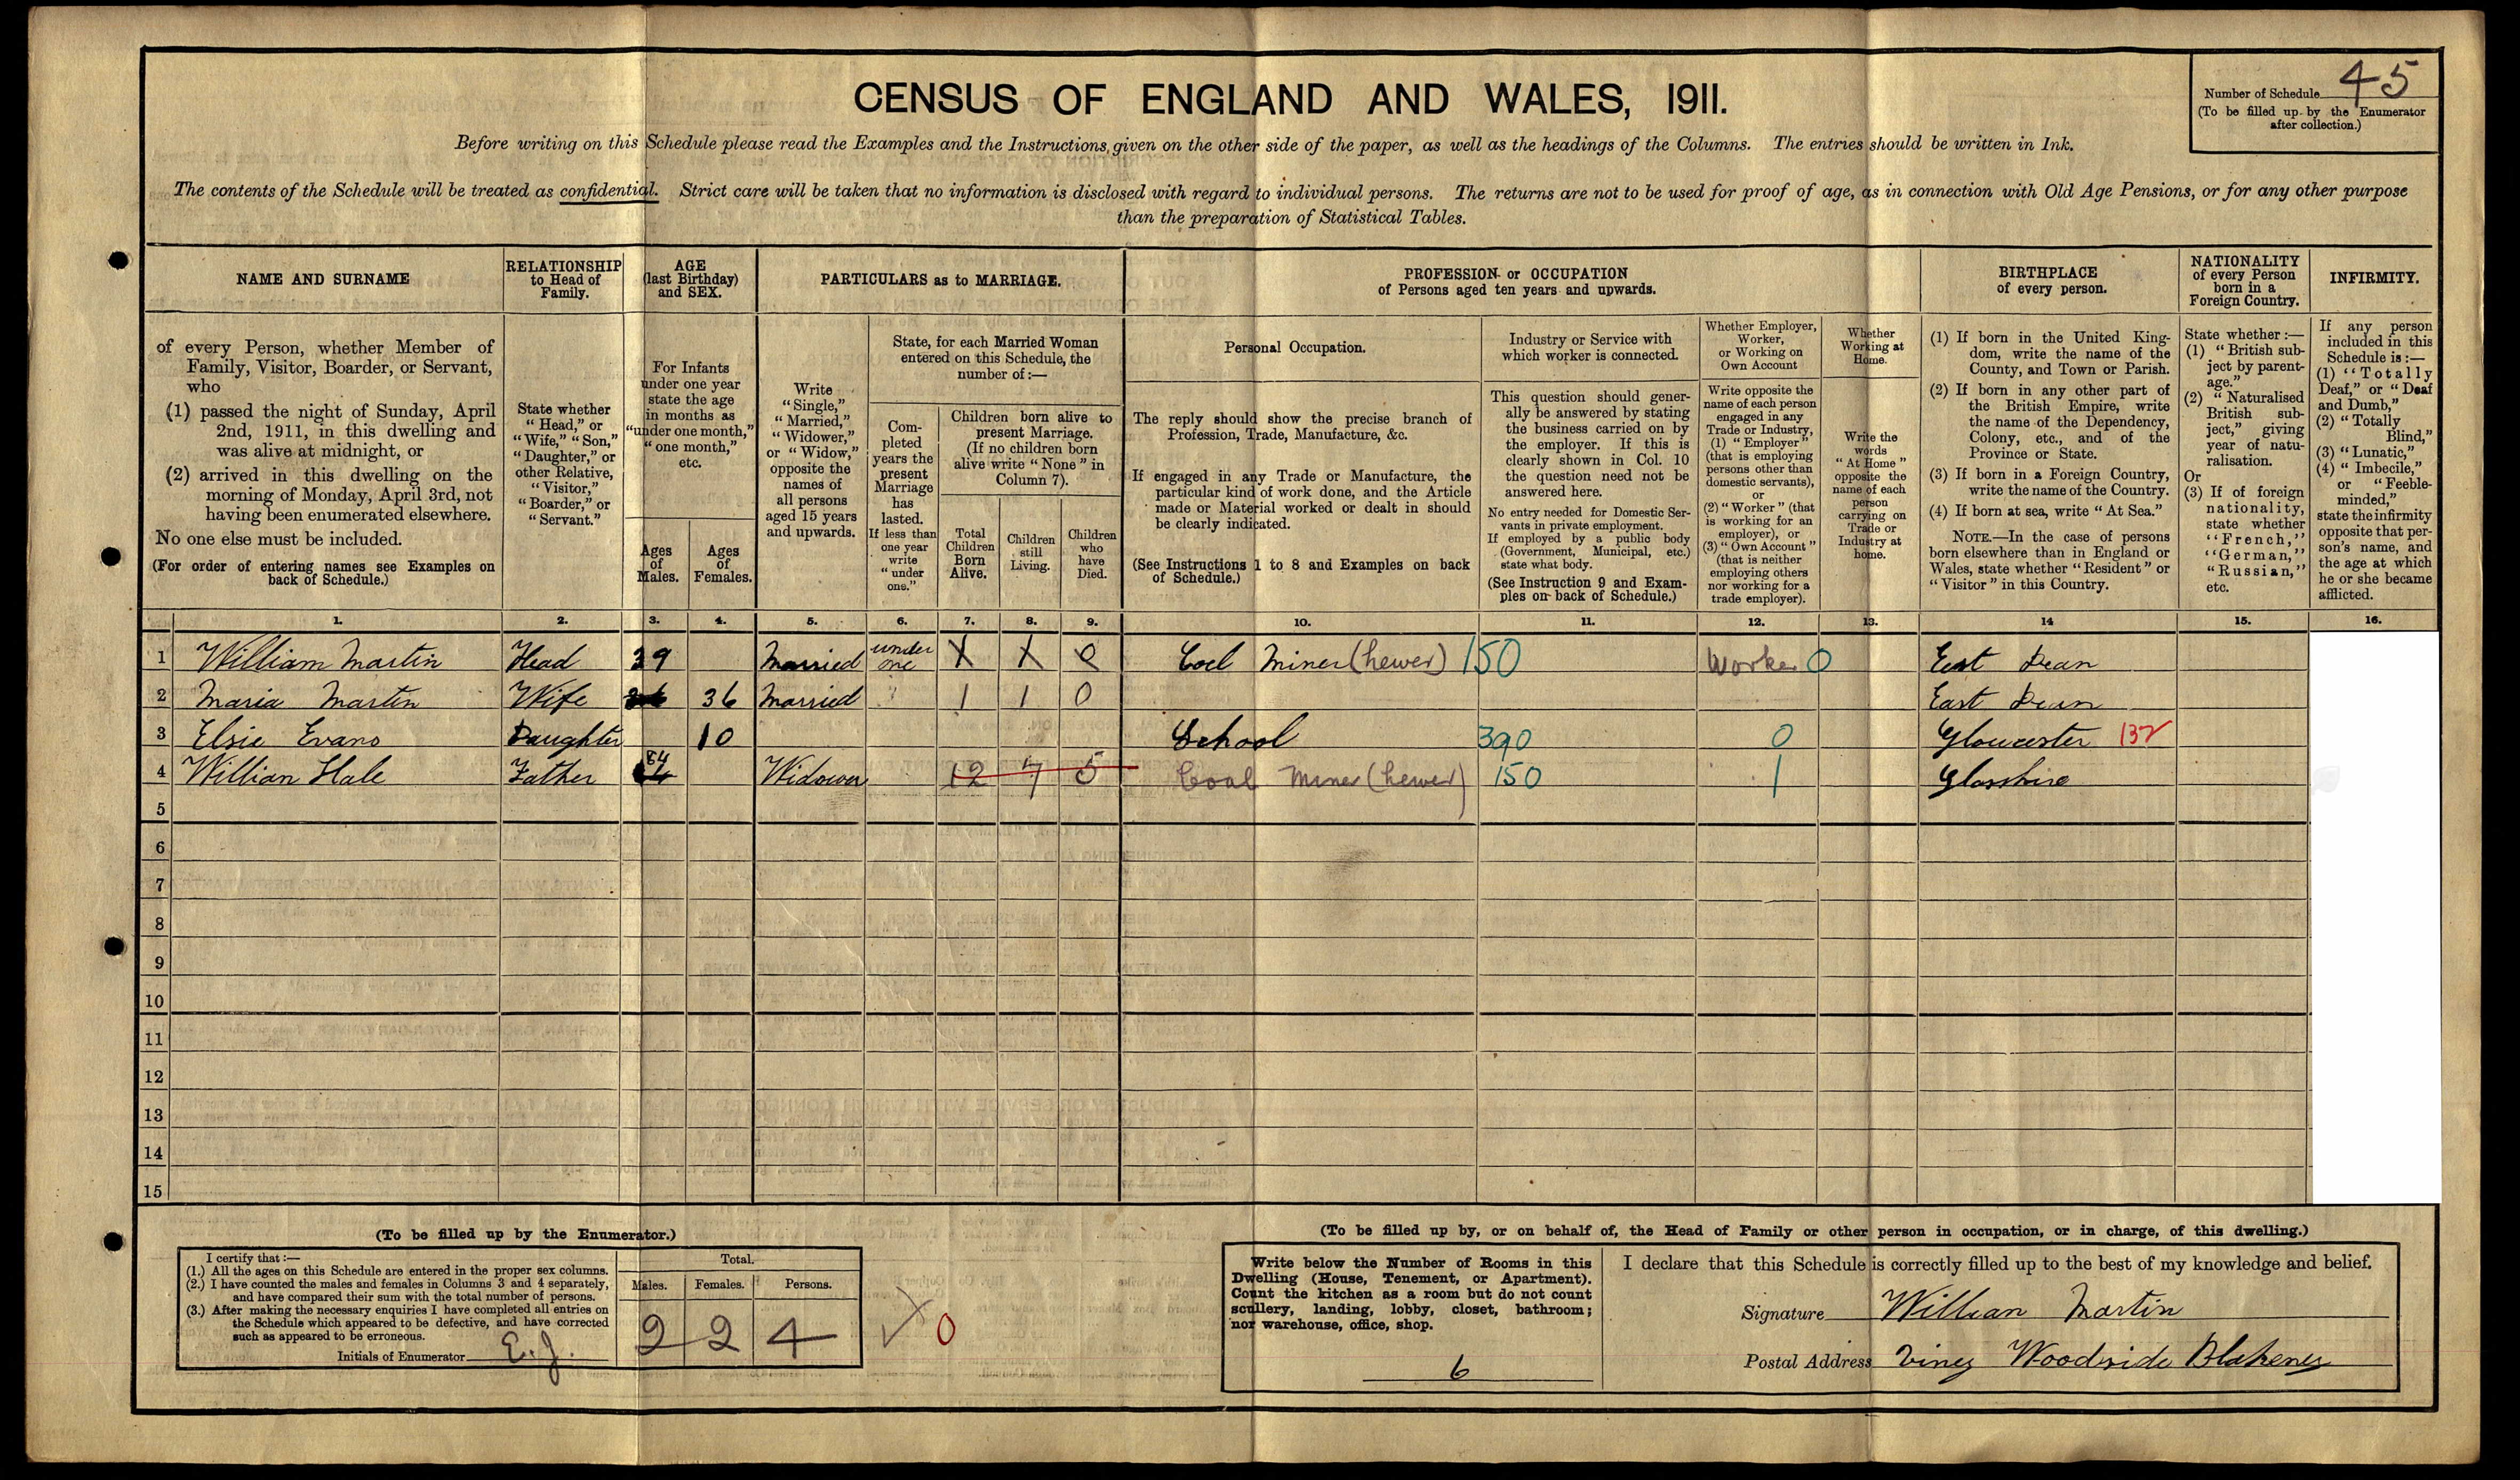 CENSUS OF ENGLAND AND WALES, 1911.
Number of Schedule 45
(To be filled up by the Enumerator
after collection.)
Before writing on this Schedule please read the Examples and the Instructions given on the other side of the paper, as well as the headings of the Columns. The entries should be written in Ink.
The contents of the Schedule will be treated as confidential. Strict care will be taken that no information is disclosed with regard to individual persons. The returns are not to be used for proof of age, as in connection with Old Age Pensions, or for any other purpose
than the preparation of Statistical Tables.
NAME AND SURNAME
of every Person, whether Member of
Family, Visitor, Boarder, or Servant,
who
(1) passed the night of Sunday, April
2nd, 1911, in this dwelling and
was alive at midnight, or
(2) arrived in this dwelling on the
morning of Monday, April 3rd, not
having been enumerated elsewhere.
No one else must be included.
(For order of entering names see Examples on
back of Schedule.)
RELATIONSHIP
to Head of
Family.
State whether
"Head," or
"Wife," "Son,"
"Daughter," or
other Relative,
"Visitor,"
"Boarder," or
"Servant."
AGE
(last Birthday)
and SEX.
For Infants
under one year
state the age
in months as
"under one month,"
"one month,"
etc.
Ages
of
Males.
Ages
of
Females.
PARTICULARS as to MARRIAGE.
Write
"Single,"
"Married,"
"Widower,"
or "Widow,"
opposite the
names of
all persons
aged 15 years
and upwards.
State, for each Married Woman
entered on this Schedule, the
number of:—
Com-
pleted
years the
present
Marriage
has
lasted.
If less than
one year
write
"under
one."
Children born alive to
present Marriage.
(If no children born
alive write "None" in
Column 7).
Total
Children
Born
Alive.
Children
still
Living.
Children
who
have
Died.
PROFESSION or OCCUPATION
of Persons aged ten years and upwards.
Personal Occupation.
The reply should show the precise branch of
Profession, Trade, Manufacture, &c.
If engaged in any Trade or Manufacture, the
particular kind of work done, and the Article
made or Material worked or dealt in should
be clearly indicated.
(See Instructions 1 to 8 and Examples on back
of Schedule.)
Industry or Service with
which worker is connected.
This question should gener-
ally be answered by stating
the business carried on by
the employer. If this is
clearly shown in Col. 10
the question need not be
answered here.
No entry needed for Domestic Ser-
vants in private employment.
If employed by a public body
(Government, Municipal, etc.)
state what body.
(See Instruction 9 and Exam-
ples on back of Schedule.)
Whether Employer,
Worker,
or Working on
Own Account
Write opposite the
name of each person
engaged in any
Trade or Industry,
(1) "Employer"
(that is employing
persons other than
domestic servants),
or
(2) "Worker" (that
is working for an
employer), or
(3) "Own Account"
(that is neither
employing others
nor working for a
trade employer).
Whether
Working at
Home.
Write the
words
"At Home"
opposite the
name of each
person
carrying on
Trade or
Industry at
home.
BIRTHPLACE
of every person.
(1) If born in the United King-
dom, write the name of the
County, and Town or Parish.
(2) If born in any other part of
the British Empire, write
the name of the Dependency,
Colony, etc., and of the
Province or State.
(3) If born in a Foreign Country,
write the name of the Country.
(4) If born at sea, write "At Sea."
NOTE.—In the case of persons
born elsewhere than in England or
Wales, state whether "Resident" or
"Visitor" in this Country.
NATIONALITY
of every Person
born in a
Foreign Country.
State whether:—
(1) "British sub-
ject by parent-
age."
(2) "Naturalised
British sub-
ject," giving
year of natu-
ralisation.
Or
(3) If of foreign
nationality,
state whether
"French,"
"German,"
"Russian,"
etc.
INFIRMITY.
If any person
included in this
Schedule is:—
(1) "Totally
Deaf," or "Deaf
and Dumb,"
(2) "Totally
Blind,"
(3) "Lunatic,"
(4) "Imbecile,"
or "Feeble-
minded,"
state the infirmity
opposite that per-
son's name, and
the age at which
he or she became
afflicted.
1. 2. 3. 4. 5. 6. 7. 8. 9. 10. 11. 12. 13. 14 15. 16.
1 William Martin Head 39 Married under one X X 0 Coel Miner (hewer) 150 Worker 0 East Dean
2 Maria Martin Wife 36 Married 1 1 0 East Dean
3 Elsie Evans Daughter 10 School 390 0 Gloucester 132
4 William Hale Father 84 Widower 12 7 5 Coal Miner (hewer) 150 1 Glosshire
5
6
7
8
9
10
11
12
13
14
15
(To be filled up by the Enumerator.)
I certify that:—
(1.) All the ages on this Schedule are entered in the proper sex columns.
(2.) I have counted the males and females in Columns 3 and 4 separately,
and have compared their sum with the total number of persons.
(3.) After making the necessary enquiries I have completed all entries on
the Schedule which appeared to be defective, and have corrected
such as appeared to be erroneous.
Initials of Enumerator E.J.
Total.
Males. Females. Persons.
2 2 4
0
(To be filled up by, or on behalf of, the Head of Family or other person in occupation, or in charge, of this dwelling.)
Write below the Number of Rooms in this
Dwelling (House, Tenement, or Apartment).
Count the kitchen as a room but do not count
scullery, landing, lobby, closet, bathroom;
nor warehouse, office, shop.
6
I declare that this Schedule is correctly filled up to the best of my knowledge and belief.
Signature William Martin
Postal Address Viney Woodside Blakeney